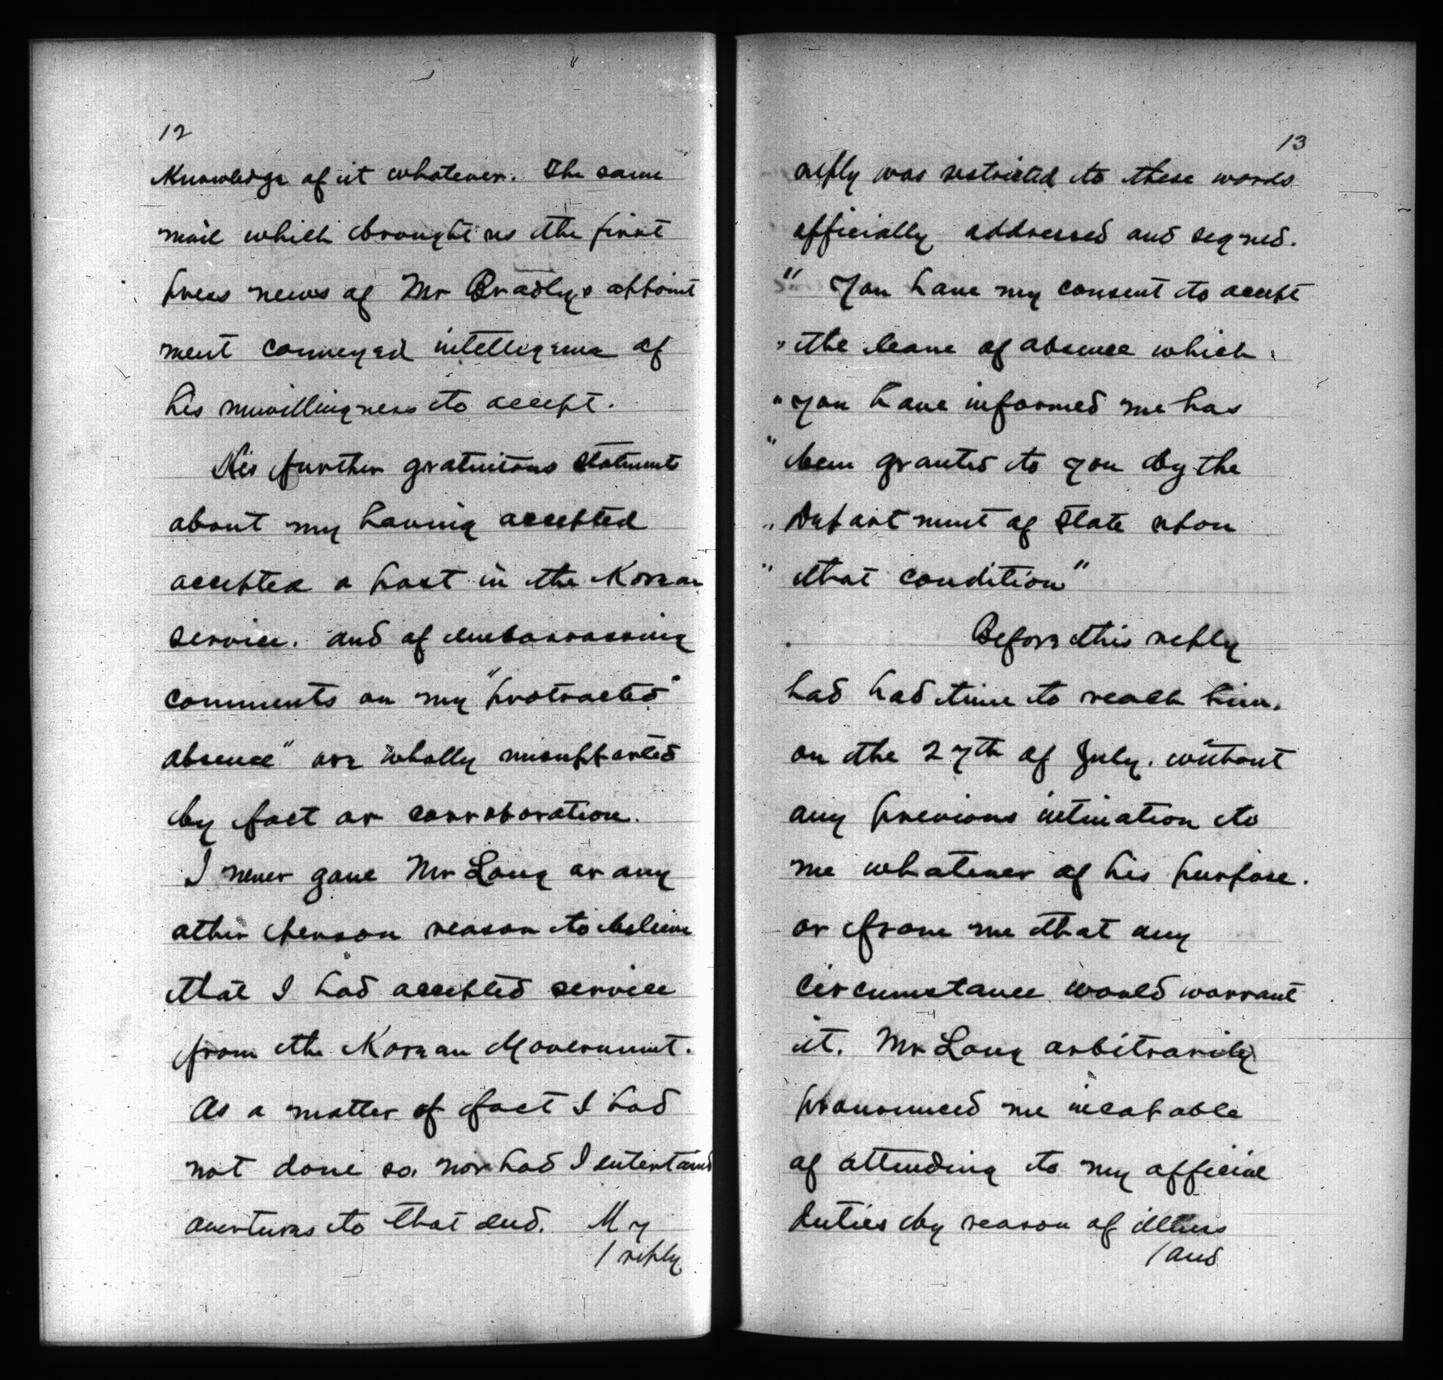 12
Knowledge of it whatever. The same
mail which brought us the first
press news of Mr Bradly's appoint
ment conveyed intelligence of
his unwillingness to accept.
His further gratuitous statements
about my having accepted
accepted a post in the Korean
service. and of embarrassing
comments on my "protracted"
absence" are wholly unsupported
by fact or corroboration.
I never gave Mr Long or any
other person reason to believe
that I had accepted service
from the Korean Government.
As a matter of fact I had
not done so. nor had I entertained
overtures to that end. My
/ reply
13
reply was restricted to these words
officially addressed and signed.
" You have my consent to accept
" the leave of absence which
" you have informed me has
" been granted to you by the
" Department of State upon
" that condition"
Before this reply
had had time to reach him.
on the 27th of July. without
any previous intimation to
me whatever of his purpose.
or from me that any
circumstance would warrant
it. Mr Long arbitrarily
pronounced me incapable
of attending to my official
duties by reason of illness
/ and